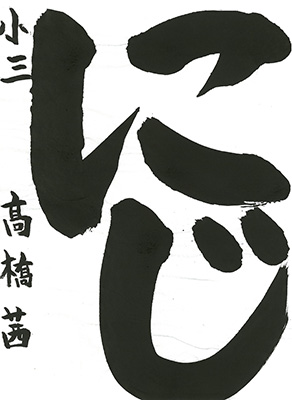 にじ
小三 高橋茜